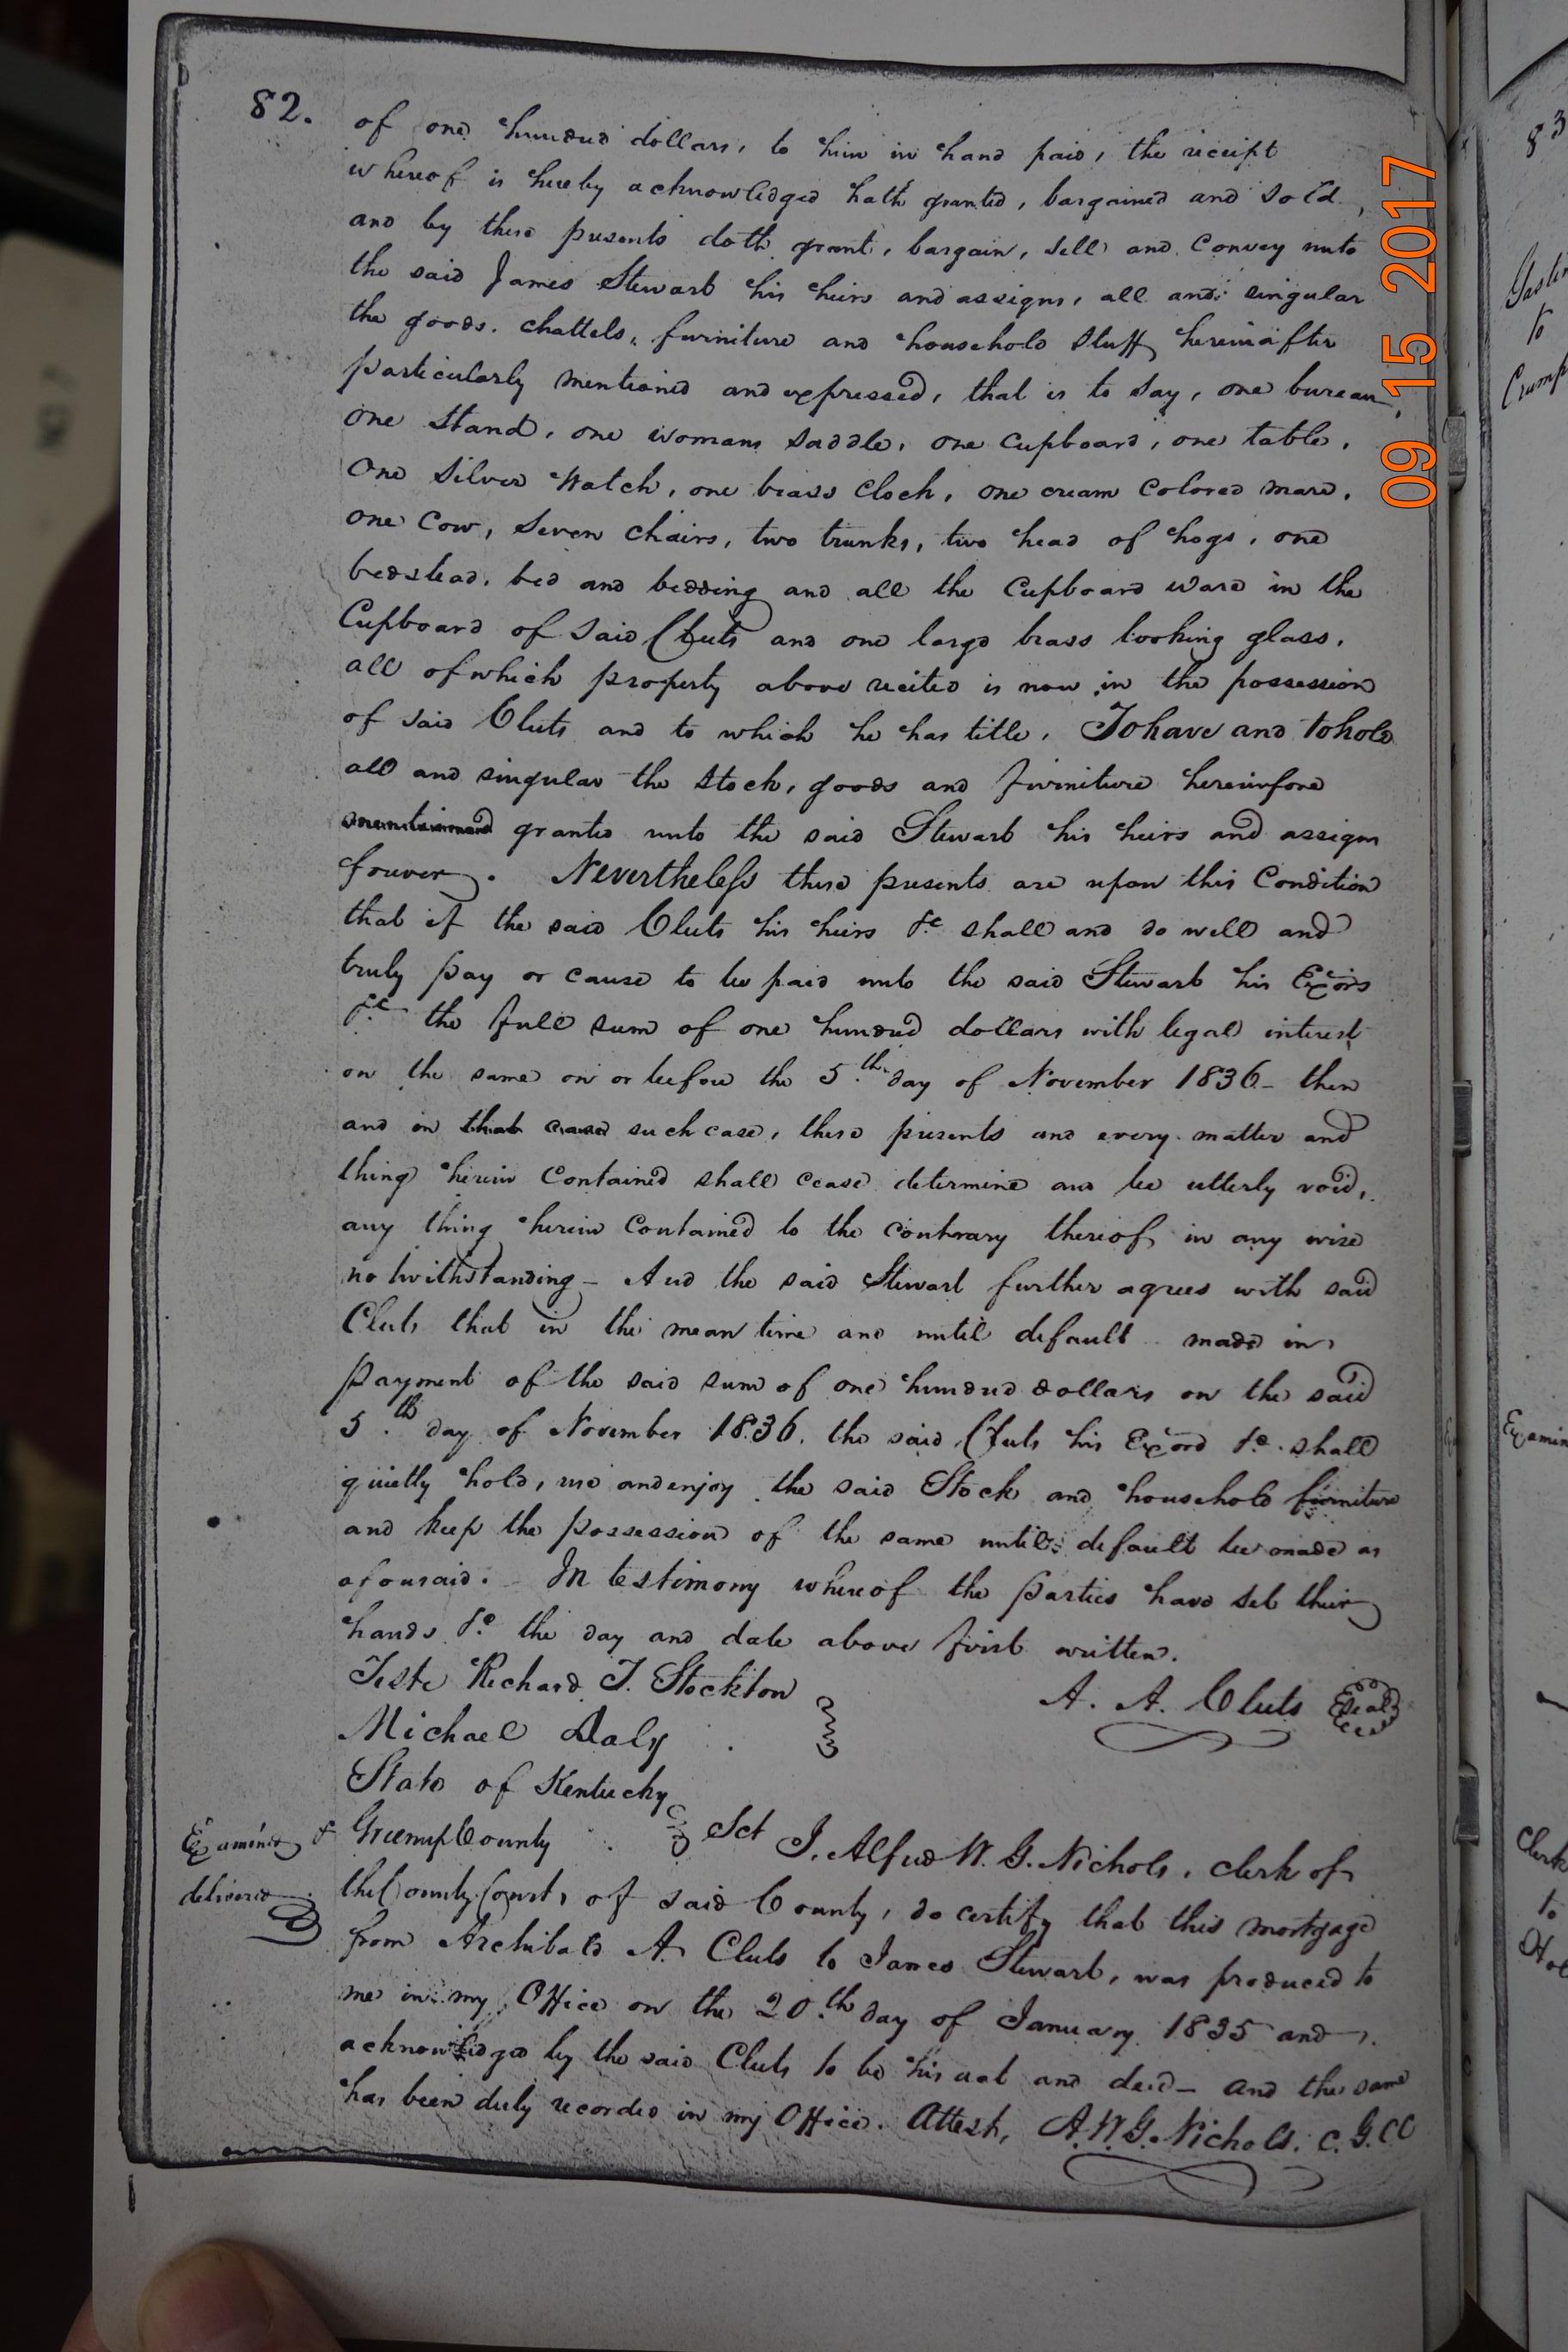 82.
of one hundred dollars, to him in hand paid, the receipt
whereof is hereby acknowledged hath granted, bargained and sold,
and by these presents doth grant, bargain, sell and convey unto
the said James Stewart his heirs and assigns, all and singular
the goods, chattels, furniture and household stuff hereinafter
particularly mentioned and expressed, that is to say, one bureau,
one stand, one womans saddle, one cupboard, one table,
one silver watch, one brass clock, one cream colored mare,
one cow, seven chairs, two trunks, two head of hogs, one
bedstead, bed and bedding and all the cupboard ware in the
Cupboard of said Cluts and one large brass looking glass,
all of which property above recited is now in the possession
of said Cluts and to which he has title, To have and to hold
all and singular the stock, goods and furniture hereinfore
granted unto the said Stewart his heirs and assigns
forever. Nevertheless these presents are upon this Condition
that if the said Cluts his heirs &c shall and do well and
truly pay or cause to be paid unto the said Stewart his Exors
&c the full sum of one hundred dollars with legal interest
on the same on or before the 5th day of November 1836 - then
and in that case such case, these presents and every matter and
thing herein contained shall cease determine and be utterly void,
any thing herein contained to the contrary thereof in any wise
notwithstanding - And the said Stewart further agrees with said
Cluts that in the mean time and until default made in
payment of the said sum of one hundred dollars on the said
5th day of November 1836. the said Cluts his Exors &c. shall
quietly hold, use and enjoy the said Stock and household furniture
and keep the possession of the same until default be made as
aforesaid. In testimony whereof the parties have set their
hands &c the day and date above first written.
Teste Richard T. Stockton
A. A. Cluts Seal
Michael Daly
State of Kentucky
Greenup County Sct I, Alfred W. G. Nichols, clerk of
Examined &
delivered
the County Court, of said County, do certify that this mortgage
from Archibald A. Cluts to James Stewart, was produced to
me in my Office on the 20th day of January 1835 and
acknowledged by the said Cluts to be his act and deed - and the same
has been duly recorded in my Office. Attest, A. W. G. Nichols. C. G. CC
09 15 2017
83
to
Crump
Examin
Clerk
to